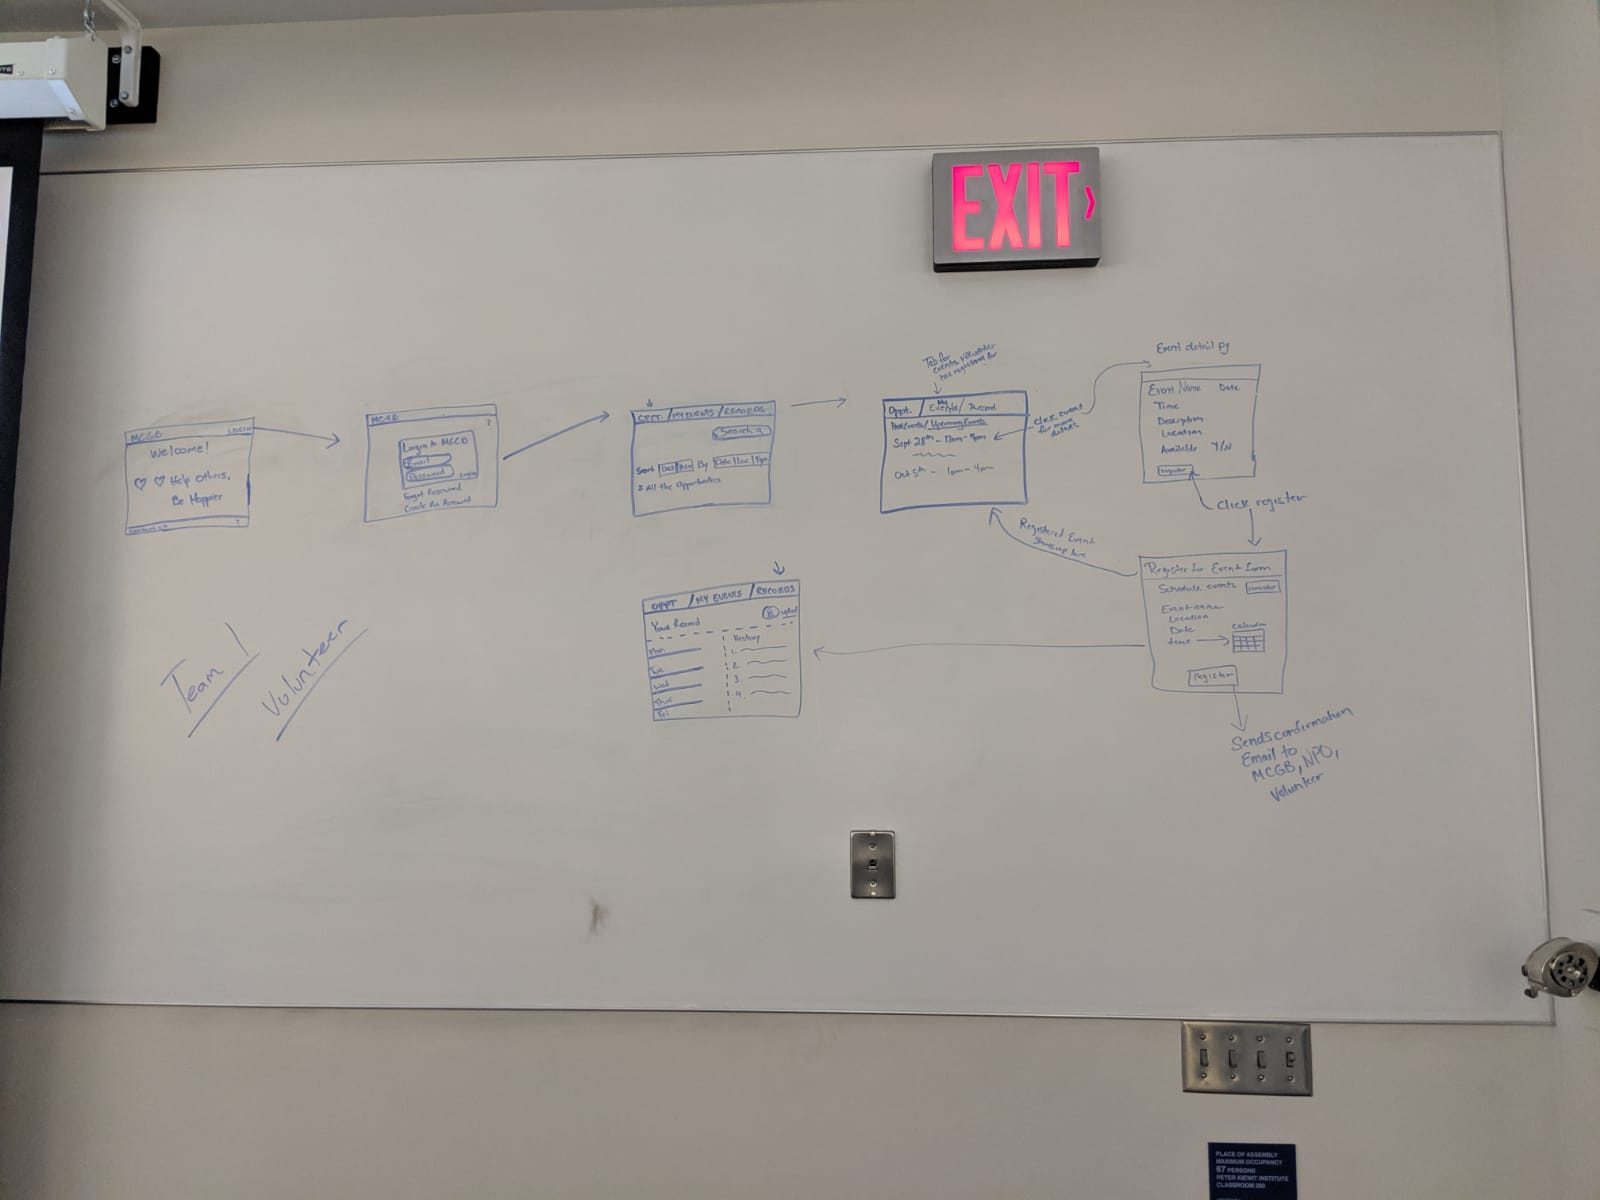 EXIT
MCGB LOGIN
Welcome!
Help others.
Be Happier
?
MCGB
?
Login to MCGB
Email
Password
Login
Forgot Password
Create An Account
OPPT. / MY EVENTS / RECORDS
Search
Sort By Date Loc Type
All the Opportunities
Tab for
events volunteer
has registered for
Oppt. / My Events / Record
Past Events / Upcoming Events
Sept 28th - 12pm - 4pm
Oct 5th - 1pm - 4pm
Click event
for more
details
Event detail pg
Event Name Date
Time
Description
Location
Available Y/N
register
Click register
Registered Event
shows up here
Register for Event form
Schedule events
Event name
Location
Date
time
Calendar
register
Sends confirmation
Email to
MCGB, NPO,
Volunteer
OPPT / MY EVENTS / RECORDS
Your Record upload
History
Mon
Tue
Wed
Thur
Fri
1.
2.
3.
4.
Team 1
Volunteer
PLACE OF ASSEMBLY
MAXIMUM OCCUPANCY
67 PERSONS
PETER KIEWIT INSTITUTE
CLASSROOM 269